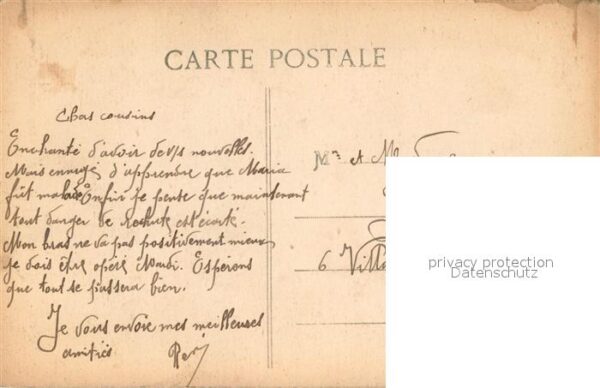 CARTE POSTALE
Chers cousins
Enchanté d'avoir de vos nouvelles.
Mais ennuyé d'apprendre que Maria
fût malade. Enfin je pense que maintenant
tout danger de rechute est écarté.
Mon bras ne va pas positivement mieux
je dois être opéré Mardi. Espérons
que tout se passera bien.
Je vous envoie mes meilleures
amitiés
Mr et M
6 Villa
privacy protection
Datenschutz